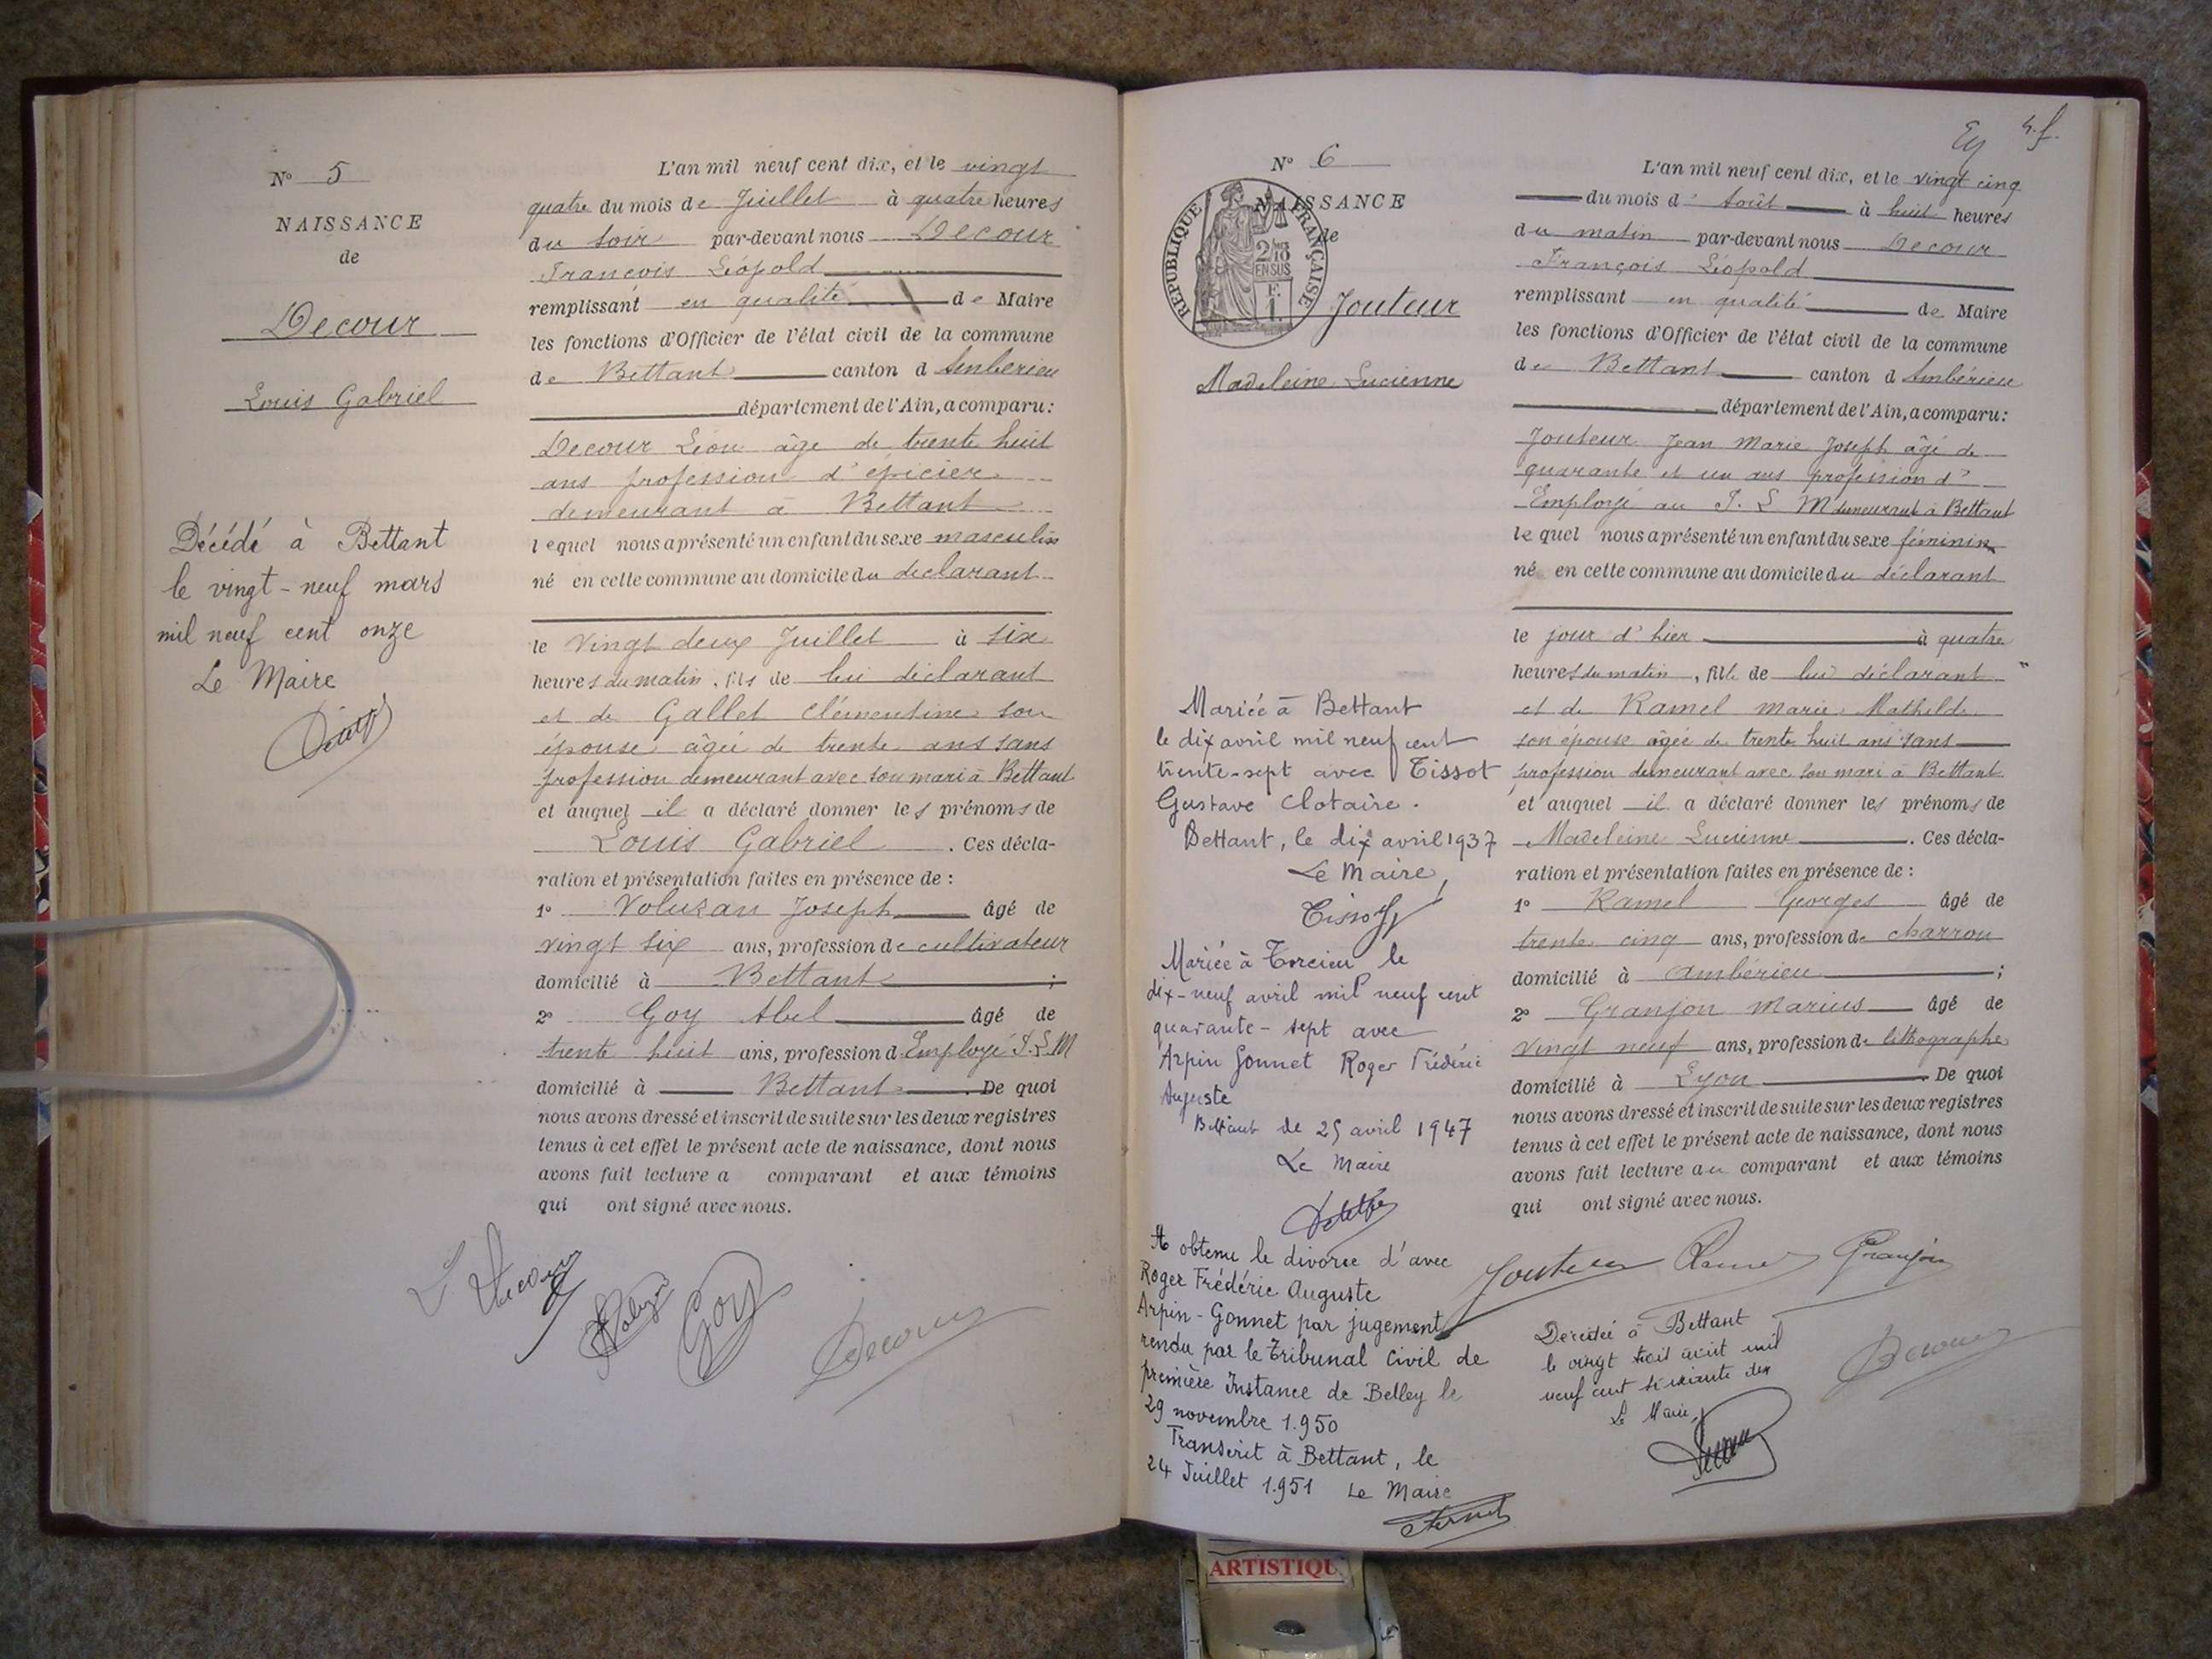 N° 5
NAISSANCE
de
Decour
Louis Gabriel
Décédé à Bettant
le vingt-neuf mars
mil neuf cent onze
Le Maire
L'an mil neuf cent dix, et le vingt
quatre du mois de Juillet à quatre heures
du soir par-devant nous Decour
François Léopold
remplissant en qualité de Maire
les fonctions d'Officier de l'état civil de la commune
de Bettant canton d Ambérieu
département de l'Ain, a comparu:
Decour Léon âgé de trente huit
ans profession d'épicier
demeurant à Bettant
lequel nous a présenté un enfant du sexe masculin
né en cette commune au domicile du déclarant
le vingt deux Juillet à six
heures du matin, fils de lui déclarant
et de Gallet Clémentine son
épouse âgée de trente ans sans
profession demeurant avec son mari à Bettant
et auquel il a déclaré donner les prénoms de
Louis Gabriel. Ces décla-
ration et présentation faites en présence de :
1° Voluzan Joseph âgé de
vingt six ans, profession de cultivateur
domicilié à Bettant ;
2° Goy Abel âgé de
trente huit ans, profession d Employé P.L.M
domicilié à Bettant. De quoi
nous avons dressé et inscrit de suite sur les deux registres
tenus à cet effet le présent acte de naissance, dont nous
avons fait lecture a comparant et aux témoins
qui ont signé avec nous.
L Decour
Goy
Decour
N° 6
NAISSANCE
de
RÉPUBLIQUE FRANÇAISE
2/10
EN SUS
F.
1.
Jouteur
Madeleine Lucienne
Mariée à Bettant
le dix avril mil neuf cent
trente-sept avec Tissot
Gustave Clotaire.
Bettant, le dix avril 1937
Le Maire,
Tissot
Mariée à Torcieu le
dix-neuf avril mil neuf cent
quarante-sept avec
Arpin Gonnet Roger Frédéric
Auguste
Bettant le 25 avril 1947
Le Maire
A obtenu le divorce d'avec
Roger Frédéric Auguste
Arpin-Gonnet par jugement
rendu par le Tribunal Civil de
première Instance de Belley le
29 novembre 1.950
Transcrit à Bettant, le
24 Juillet 1.951 Le Maire
L'an mil neuf cent dix, et le vingt cinq
du mois d'Août à huit heures
du matin par-devant nous Decour
François Léopold
remplissant en qualité de Maire
les fonctions d'Officier de l'état civil de la commune
de Bettant canton d Ambérieu
département de l'Ain, a comparu:
Jouteur Jean Marie Joseph âgé de
quarante et un ans profession d'
Employé au P. L M demeurant à Bettant
lequel nous a présenté un enfant du sexe féminin
né en cette commune au domicile du déclarant
le jour d'hier à quatre
heures du matin, fille de lui déclarant
et de Ramel Marie Mathilde
son épouse âgée de trente huit ans sans
profession demeurant avec son mari à Bettant
et auquel il a déclaré donner les prénoms de
Madeleine Lucienne. Ces décla-
ration et présentation faites en présence de :
1° Ramel Georges âgé de
trente cinq ans, profession de charron
domicilié à Ambérieu ;
2° Granjon Marius âgé de
vingt neuf ans, profession de lithographe
domicilié à Lyon. De quoi
nous avons dressé et inscrit de suite sur les deux registres
tenus à cet effet le présent acte de naissance, dont nous
avons fait lecture au comparant et aux témoins
qui ont signé avec nous.
Jouteur Ramel Granjon
Décédée à Bettant
le vingt trois août mil
neuf cent soixante dix
Le Maire,
Decour
ARTISTIQU